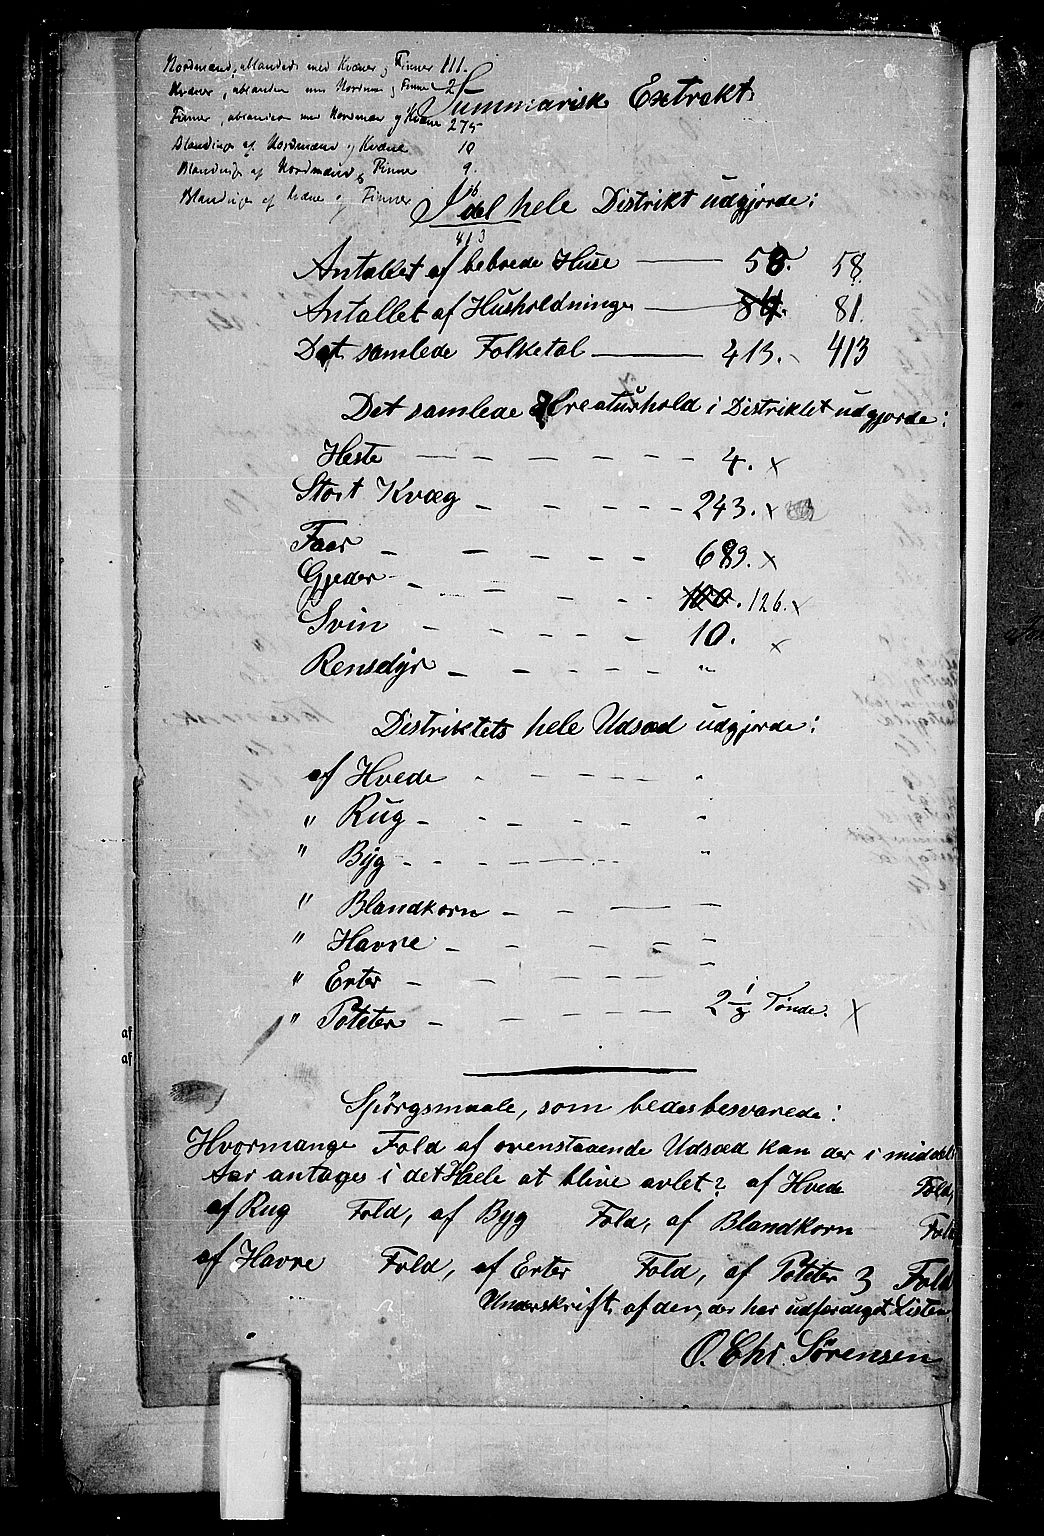 Nordmænd, ublandede med Kvæner og Finner 111.
Kvæner, ublandede med Nordmæ og Finner 2
Finner, ublandede med Nordmæ og Kvæne 275
Blandinger af Nordmænd og Kvæne 10
Blandinger af Nordmænd og Finne 9.
Blandinger af Kvæne og Finner 6
413
Summarisk Extrakt
I det hele Distrikt udgjorde:
Antallet af beboede Huse 58. 58.
Antallet af Husholdninger 84. 81.
Det samlede Folketal 413. 413
Det samlede Kreaturhold i Distriktet udgjorde:
Heste 4. x
Stort Kvæg 243. x
Faar 689. x
Gjeder 100. 126. x
Svin 10. x
Rensdyr "
Distriktets hele Udsæd udgjorde:
af Hvede "
" Rug "
" Byg "
" Blandkorn —
" Havre —
" Erter —
" Poteter 2 1/2 Tønde. x
af
af
Spörgsmaale, som bedes besvarede:
Hvormange Fold af ovenstaaende Udsæd kan der i middels
Aar antages i det Hele at blive avlet? af Hvede Fold,
af Rug Fold, af Byg Fold, af Blandkorn Fold,
af Havre Fold, af Erter Fold, af Poteter 3 Fold
Underskrift af den, der har udfærdiget Listen.
O. Chr. Sörensen